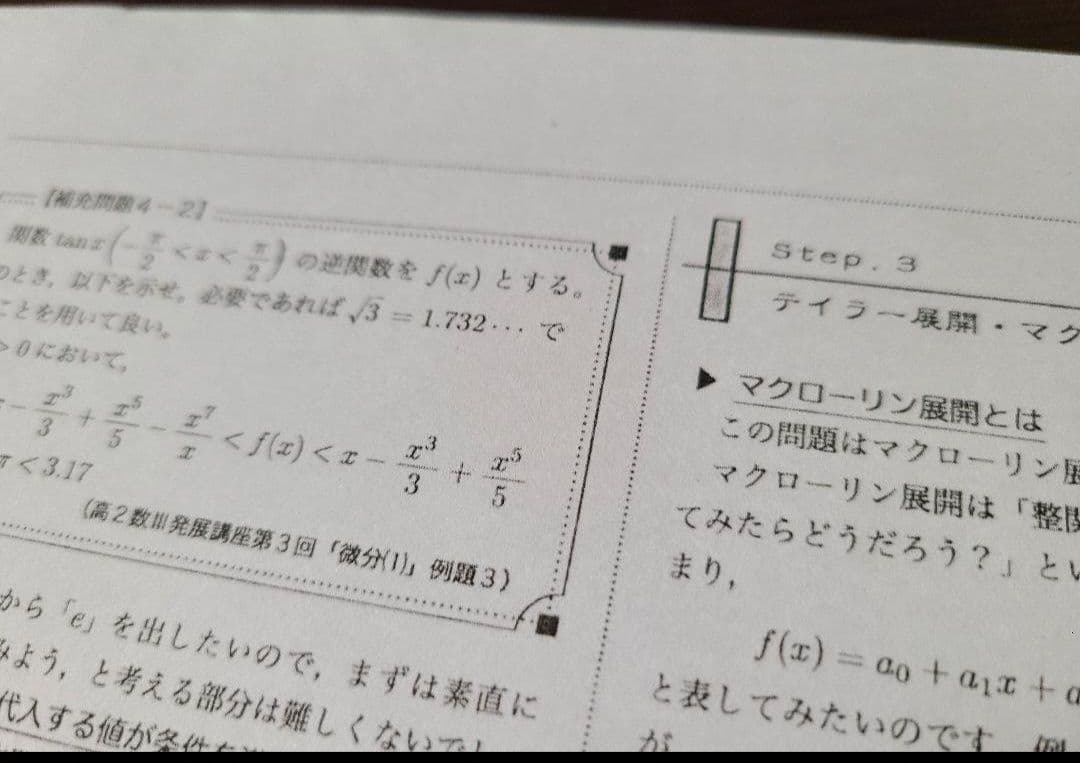 【補充問題4－2】
関数 tan x (−π/2 < x < π/2) の逆関数を f(x) とする。
のとき，以下を示せ。必要であれば √3 = 1.732··· で
ことを用いて良い。
> 0 において，
− x³/3 + x⁵/5 − x⁷/x < f(x) < x − x³/3 + x⁵/5
π < 3.17
(高2数III発展講座第3回「微分(1)」例題3)
から「e」を出したいので，まずは素直に
みよう，と考える部分は難しくないでし
代入する値が条件を
Step.3
テイラー展開・マク
▶ マクローリン展開とは
この問題はマクローリン展
マクローリン展開は「整関
てみたらどうだろう？」とい
まり，
f(x) = a₀ + a₁x + a
と表してみたいのです 例
が